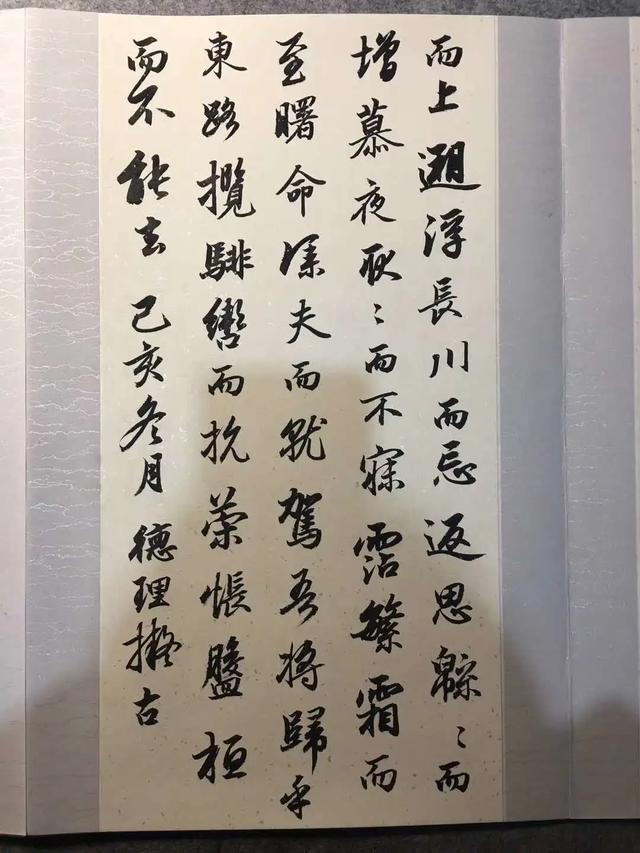 而上遡浮長川而忘返思緜〻而
增慕夜耿〻而不寐霑繁霜而
至曙命僕夫而就駕吾將歸乎
東路攬騑轡而抗策悵盤桓
而不能去 己亥冬月 德理擬古